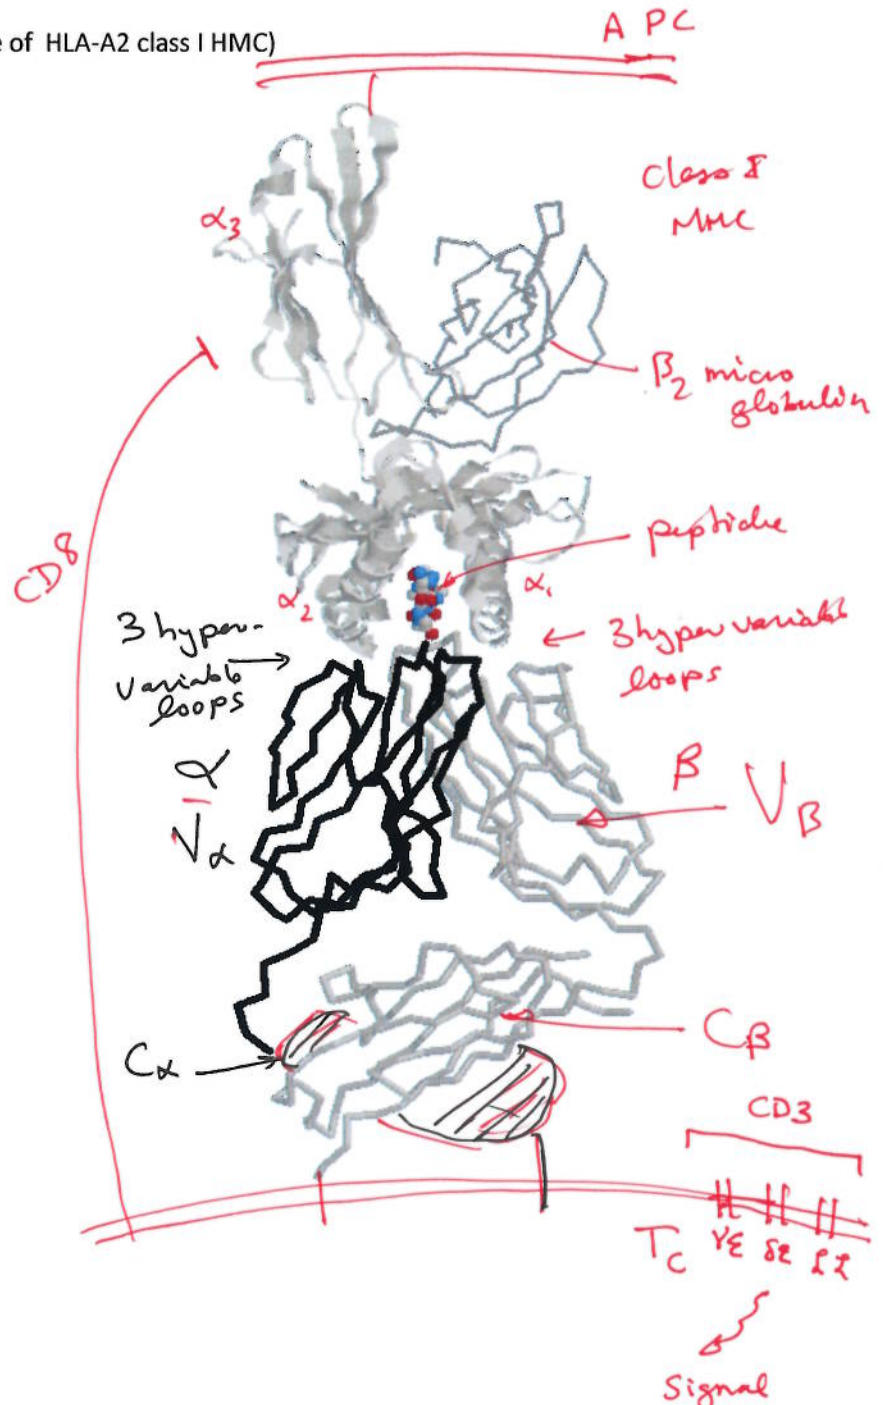 e of HLA-A2 class I HMC)
APC
Class I
MHC
α3
β2 micro
globulin
peptide
CD8
α2
α1
3 hyper-
variable
loops
3 hypervariable
loops
α
Vα
β
Vβ
Cβ
Cα
CD3
Tc
γε
δε
ζζ
Signal